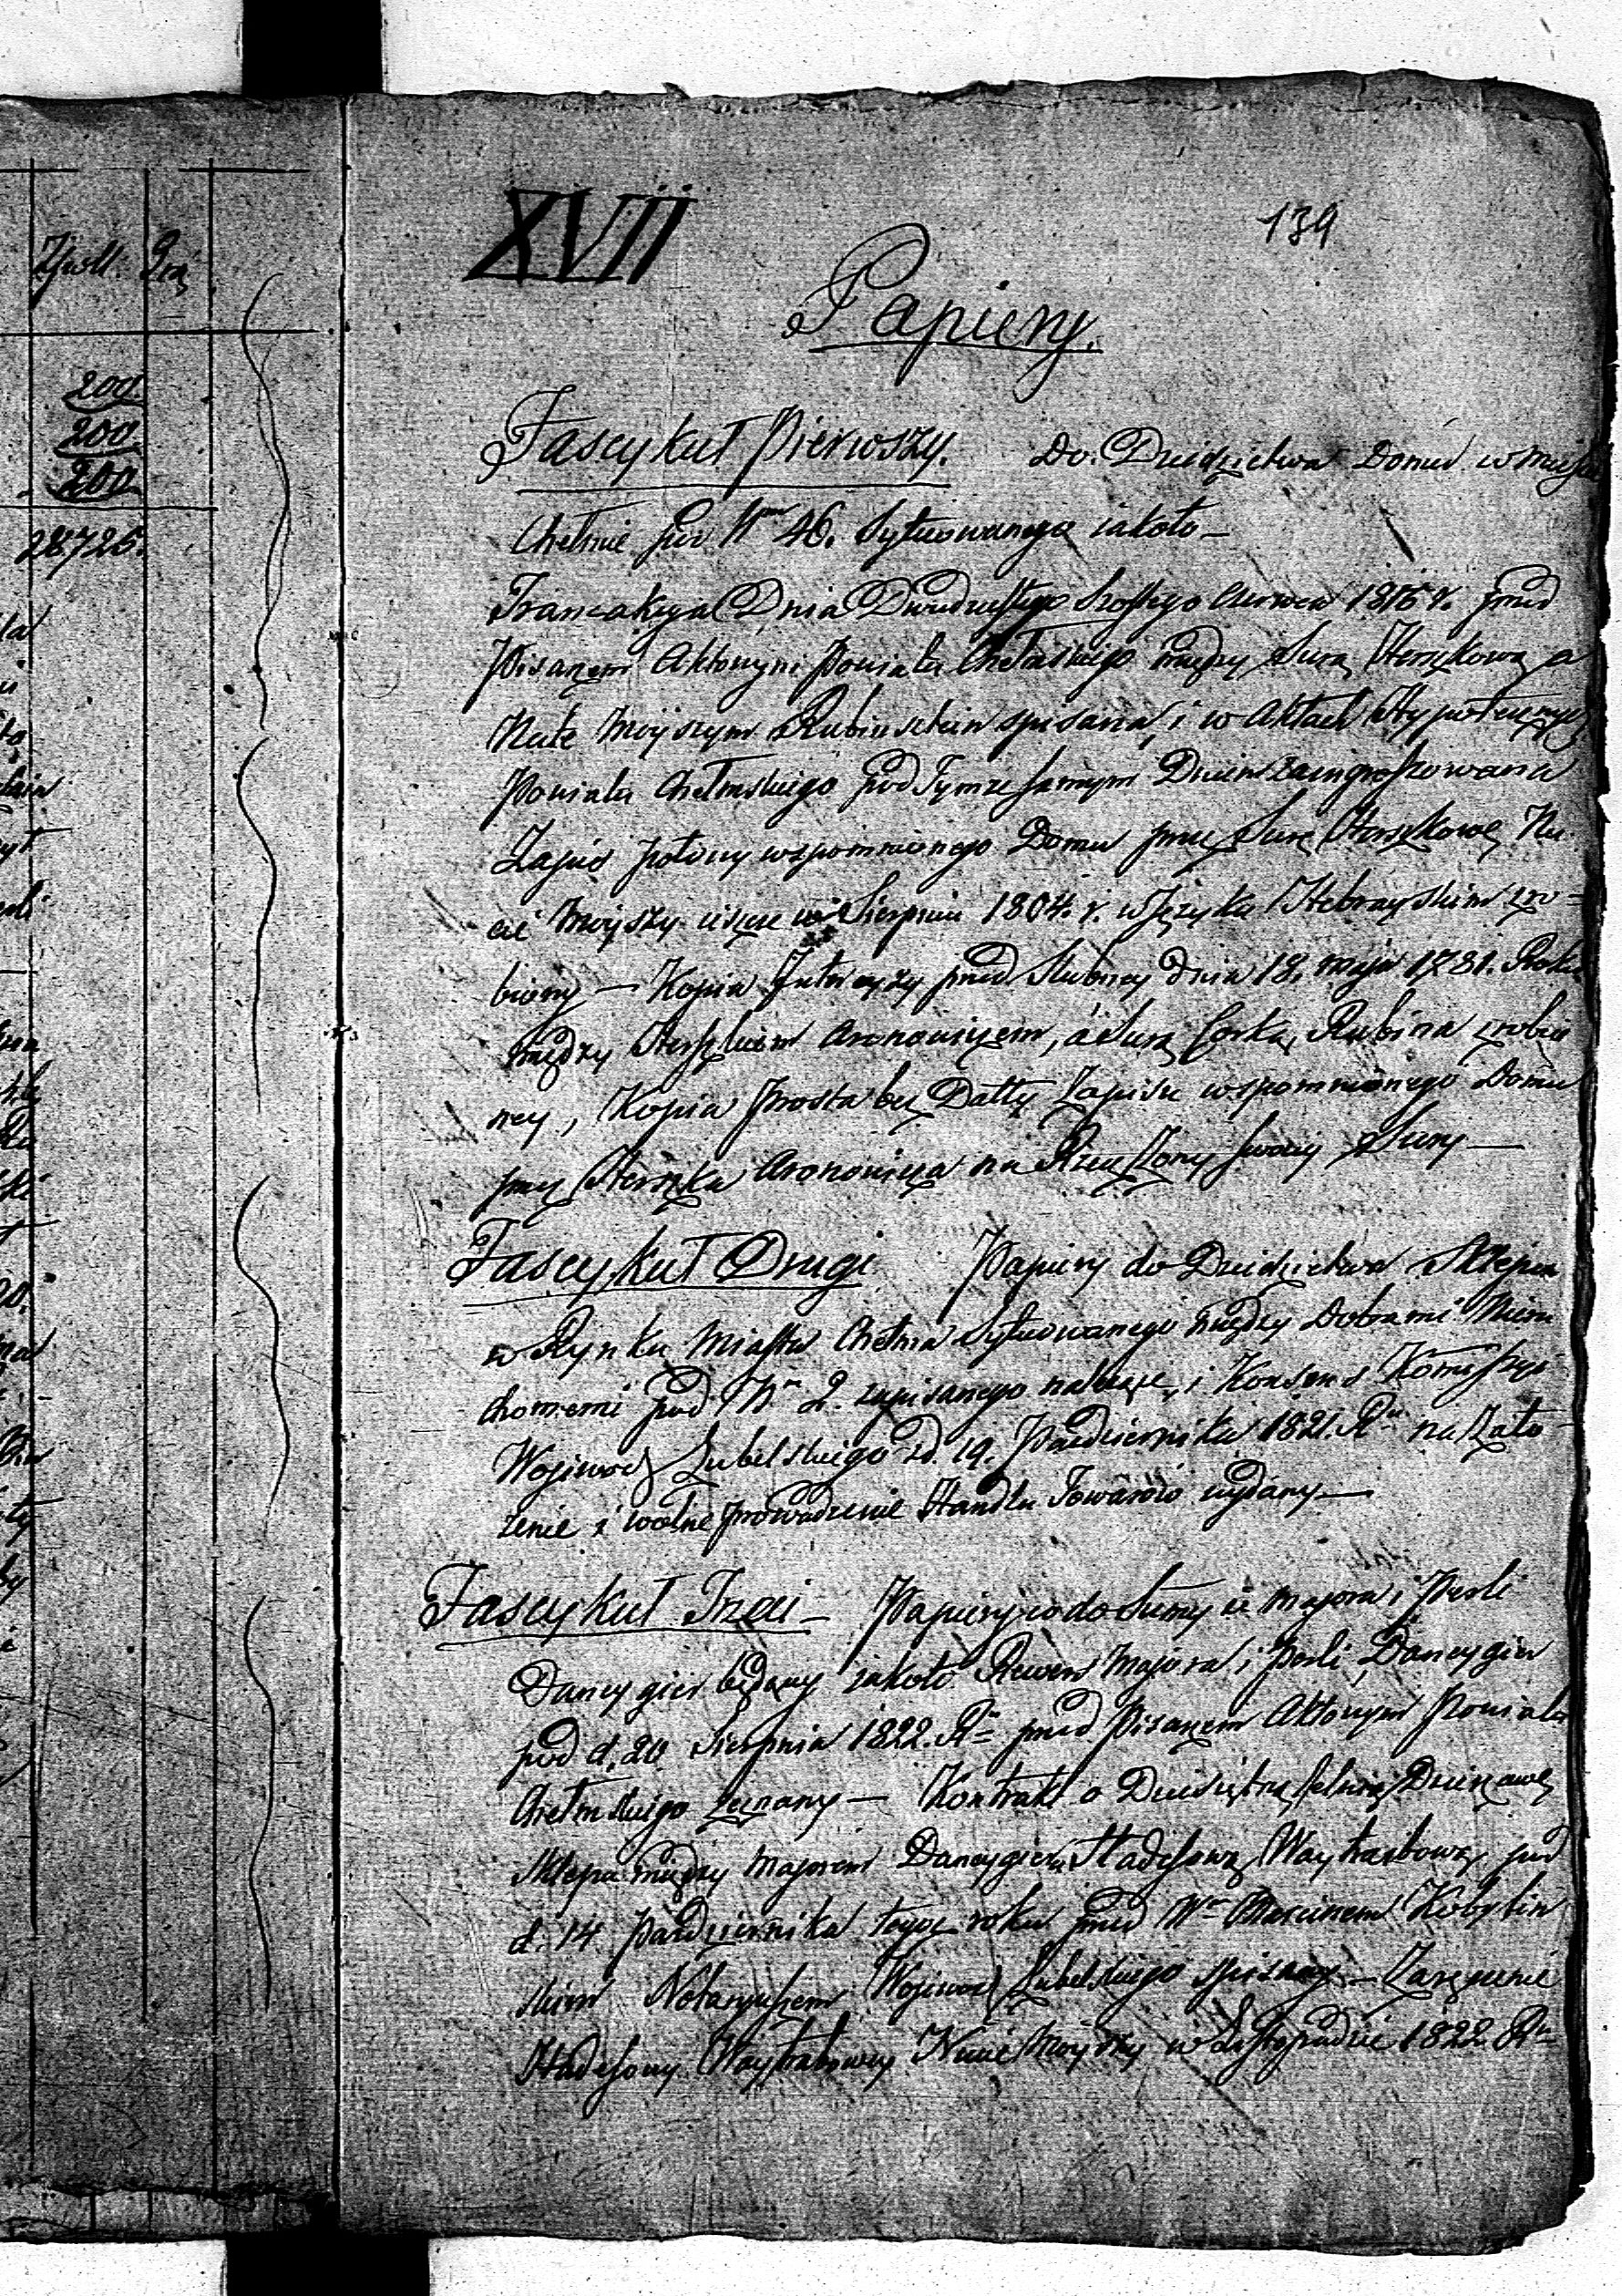 Złpoll. Gr.
200.
200.
200.
28725.
XVII
139
Papiery.
Fascykuł Pierwszy. Do Dziedzictwa Domu w mieście
Chełmie pod Nrm 46. Sytuowanego iakoto —
Tranzakcya Dnia Dwudziestego Szostego Czerwca 1815 r. przed
Pisarzem Aktowym Powiatu Chełmskiego między Surą Herszkową a
Nutą Moyszym Rubinsztein spisana, i w Aktach Hypotecznych
Powiatu Chełmskiego pod Tymże samym Dniem zaingrossowana
Zapis połowy wspomnionego Domu przez Surę Herszkowę Nu-
cie Moyszy ieszcze w Sierpniu 1804. r. w Języku Hebrayskim zro-
biony — Kopia Intercyzy przed Slubney dnia 18. maja 1781. Roku
między Herszkiem Aronowiczem, a Surą Corką Rubina zrobio
ney, Kopia prosta bez Datty Zapisu wspomnionego Domu
przez Herszka Aronowicza na Rzecz Żony swoiey Sury —
Fascykuł Drugi Papiery do Dziedzictwa Sklepu
w Rynku Miasta Chełma Sytuowanego między Dobrami Nieru
chomemi pod Nr 2. zapisanego należące, i Konsens Kommissyi
Wojewodz Lubelskiego z d. 19. Października 1821. Ru na Zało-
żenie i wolne prowadzenie Handlu Towarów wydany —
Fascykuł Trzeci — Papiery co do Summy u Majora i Perli
Dancygier będącey iakoto Rewers Majora i Perli Dancygier
pod d. 20 Sierpnia 1822. Ru przed Pisarzem Aktowym Powiatu
Chełmskiego zeznany — Kontrakt o Dziesięcio letnią Dzierżawę
Sklepu między Majorem Dancygier, Hadessową Waytraubową pod
d. 14 Października tegoż roku przed Wm Marcinem Kobylin
skim Notaryuszem Wojewodz Lubelskiego spisany — Zaręczenie
Hadessowy Waytraubowy Nucie Moyszy w Listopadzie 1822 Ru